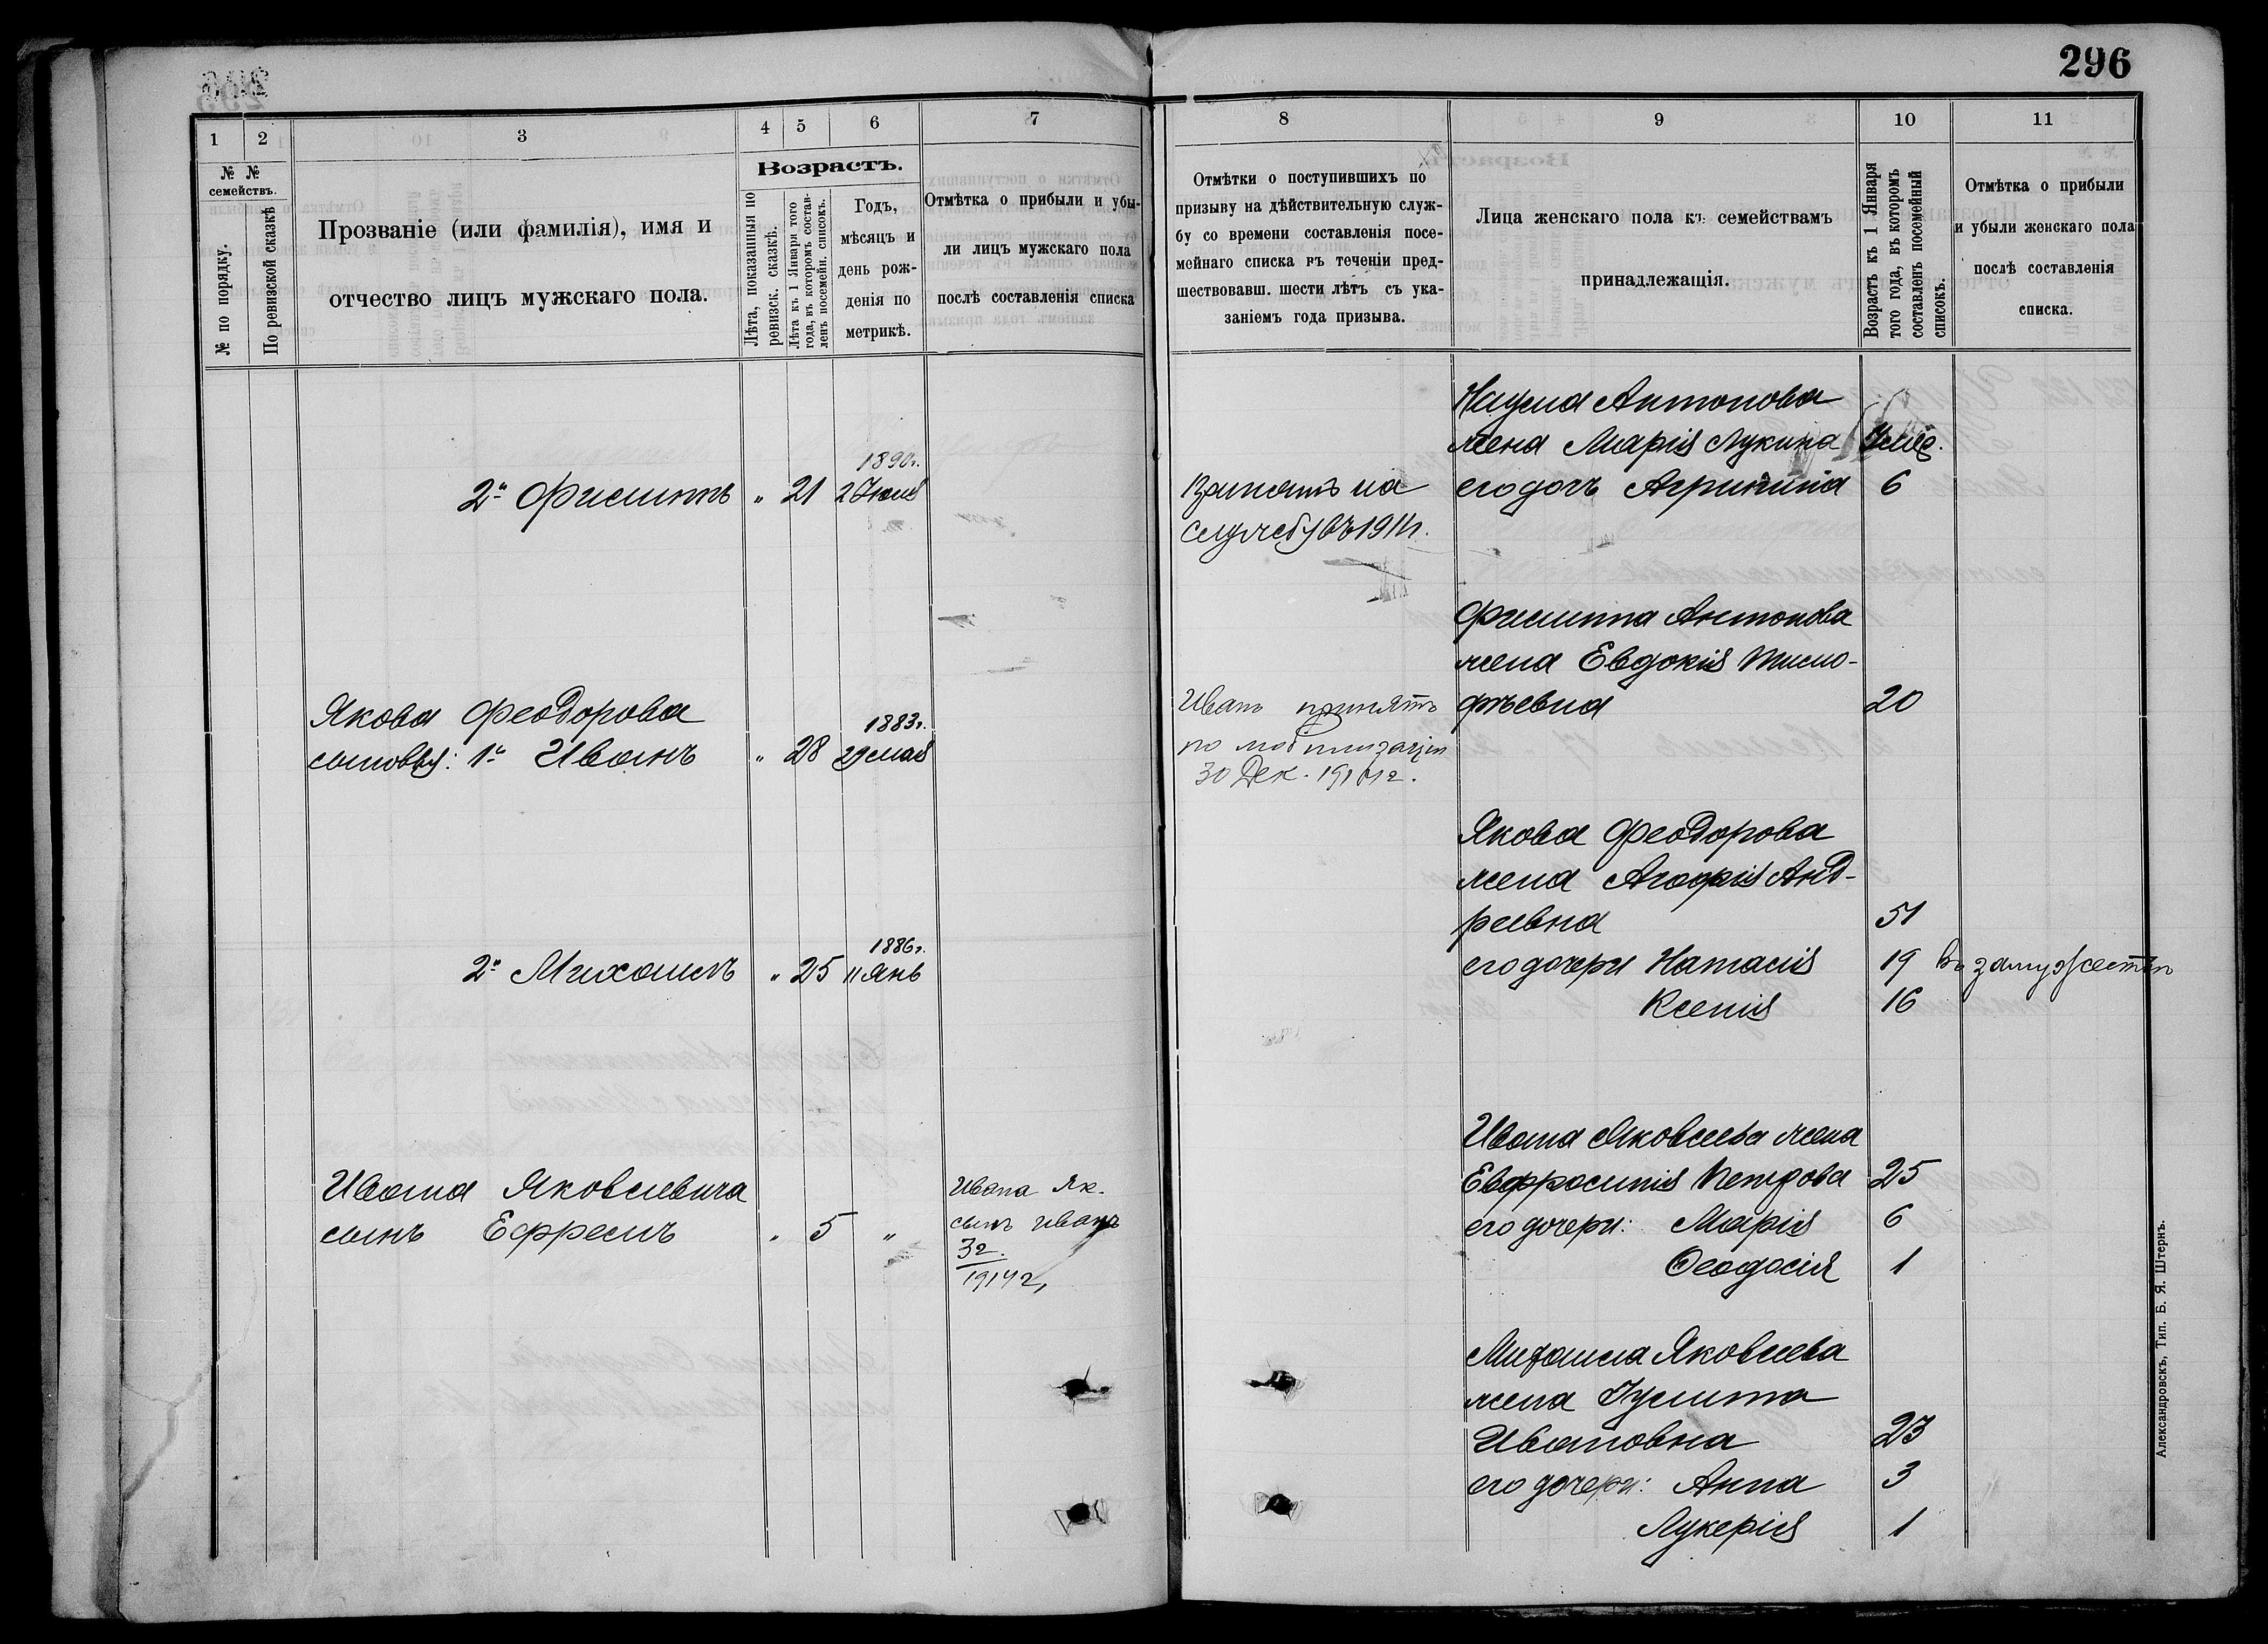 296
1
2
3
4
5
6
7
№ №
семействъ.
№ по порядку.
По ревизской сказкѣ
Прозваніе (или фамилія), имя и
отчество лицъ мужскаго пола.
Возрастъ.
Лѣта, показанныя по
ревизск. сказкѣ.
Лѣта къ 1 Января того
года, въ которомъ состав-
ленъ посемейн. списокъ.
Годъ,
мѣсяцъ и
день рож-
денія по
метрикѣ.
Отмѣтка о прибыли и убы-
ли лицъ мужскаго пола
послѣ составленія списка
1890г.
2й Филиппъ " 21 2 Іюня
Якова Феодорова
1883г.
сыновья: 1й Иванъ " 28 29 мая
1886г.
2й Михаилъ " 25 11 Янв
Ивана Яковлевича
сынъ Ефремъ " 5 "
Ивана Як.
сынъ Иванъ
3 г.
1914 г.
8
9
10
11
Отмѣтки о поступившихъ по
призыву на дѣйствительную служ-
бу со времени составленія посе-
мейнаго списка въ теченіи пред-
шествовавш. шести лѣтъ съ ука-
заніемъ года призыва.
Лица женскаго пола къ семействамъ
принадлежащія.
Возрастъ къ 1 Января
того года, въ которомъ
составленъ посемейный
списокъ.
Отмѣтка о прибыли
и убыли женскаго пола
послѣ составленія
списка.
Наума Антонова
жена Марія Лукина
его дочь Агрипина 6
на
службу въ 1911г.
Филиппа Антонова
жена Евдокія Тимо-
фѣевна 20
Иванъ принятъ
по мобилизаціи
30 Дек. 1914 г.
Якова Феодорова
жена Агафія Анд-
реевна 51
его дочери Наталія 19 въ замужествѣ
Ксенія 16
Ивана Яковлева жена
Евфросинія Петрова 25
его дочери: Марія 6
Феодосія 1
Михаила Яковлева
жена Іулита
Ивановна 23
его дочери: Анна 3
Лукерія 1
Александровскъ, Тип. Б. Я. Штернъ.